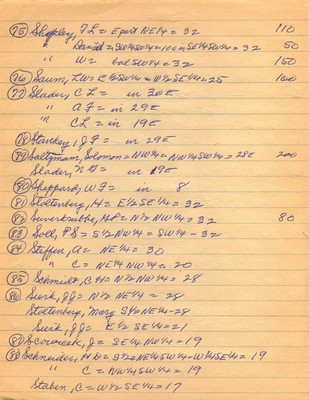 75 Shapley, FL = E part NE¼ = 32 110
" Daniel = SW¼SW¼ = 100 in SE¼SW¼ = 32 50
" W = bal SW¼ = 32 150
76 Saum, LW = E½SW¼ = W½SE¼ = 25 160
77 Slader, CL = in 30E
" AF = in 29E
" CL = in 19E
78 Starkey, JF = in 29E
79 Saltzmam, Solomon = NW¼ = NW¼SW¼ = 28E 200
Slader, = in 19E
80 Sheppard, WF = in 8
81 Stoltenberg, H = E½SE¼ = 32
82 Suverkrubbe, HP = N½NW¼ = 32 80
83 Soll, PS = S½NW¼ = SW¼ - 32
84 Steffen, A = NE¼ = 30
" C = NE¼NW¼ = 20
85 Schmidt, CH = N½NW¼ = 28
86 Sierk, JJ = N½NE¼ = 28
Stoltenberg, Marg S½NE¼ - 28
Sierk, JJ = E½SE¼ = 21
87 Scovreck, J = SE¼NW¼ = 19
88 Schneider, HD = S½NE¼SW¼ - W¼SE¼ = 19
" C = NW¼SW¼ = 19
Staben, C = W½SE¼ = 17